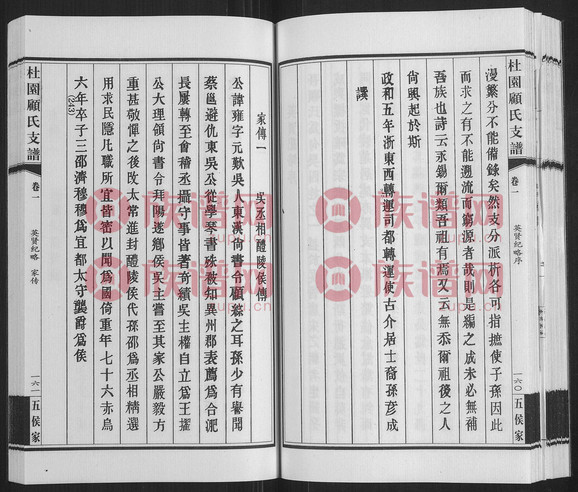 杜園顧氏支譜
卷一
英賢紀略序
一六〇
五侯家
漫繁分不能備錄矣然支分派析各可指擿使子孫因此
而求之有不能遡流而窮源者哉則是編之成未必無補
吾族也詩云永錫爾類吾祖有焉又云無忝爾祖後之人
尙興起於斯
政和五年浙東西轉運司都轉運使古介居士裔孫彥成
譔
家傳一
吳丞相醴陵侯傳
公諱雍字元歎吳人東漢尙書令顧綜之耳孫少有譽聞
蔡邕避仇東吳公從學琴書殊被知異州郡表薦爲合肥
長屢轉至會稽丞攝守事皆著奇績吳主權自立爲王擢
公大理領尙書令拜陽遂鄉侯吳主嘗至其家公嚴毅方
重甚敬憚之後改太常進封醴陵侯代孫邵爲丞相精選
用求民隱凡職所宜皆密以聞爲國倚重年七十六赤烏
六年卒子三邵濟穆穆爲宜都太守襲爵爲侯
(243)
杜園顧氏支譜
卷一
英賢紀略 家传
一六一
五侯家
族谱网
zupu.cn
族谱网
zupu.cn
族谱网
zupu.cn
族谱网
zupu.cn